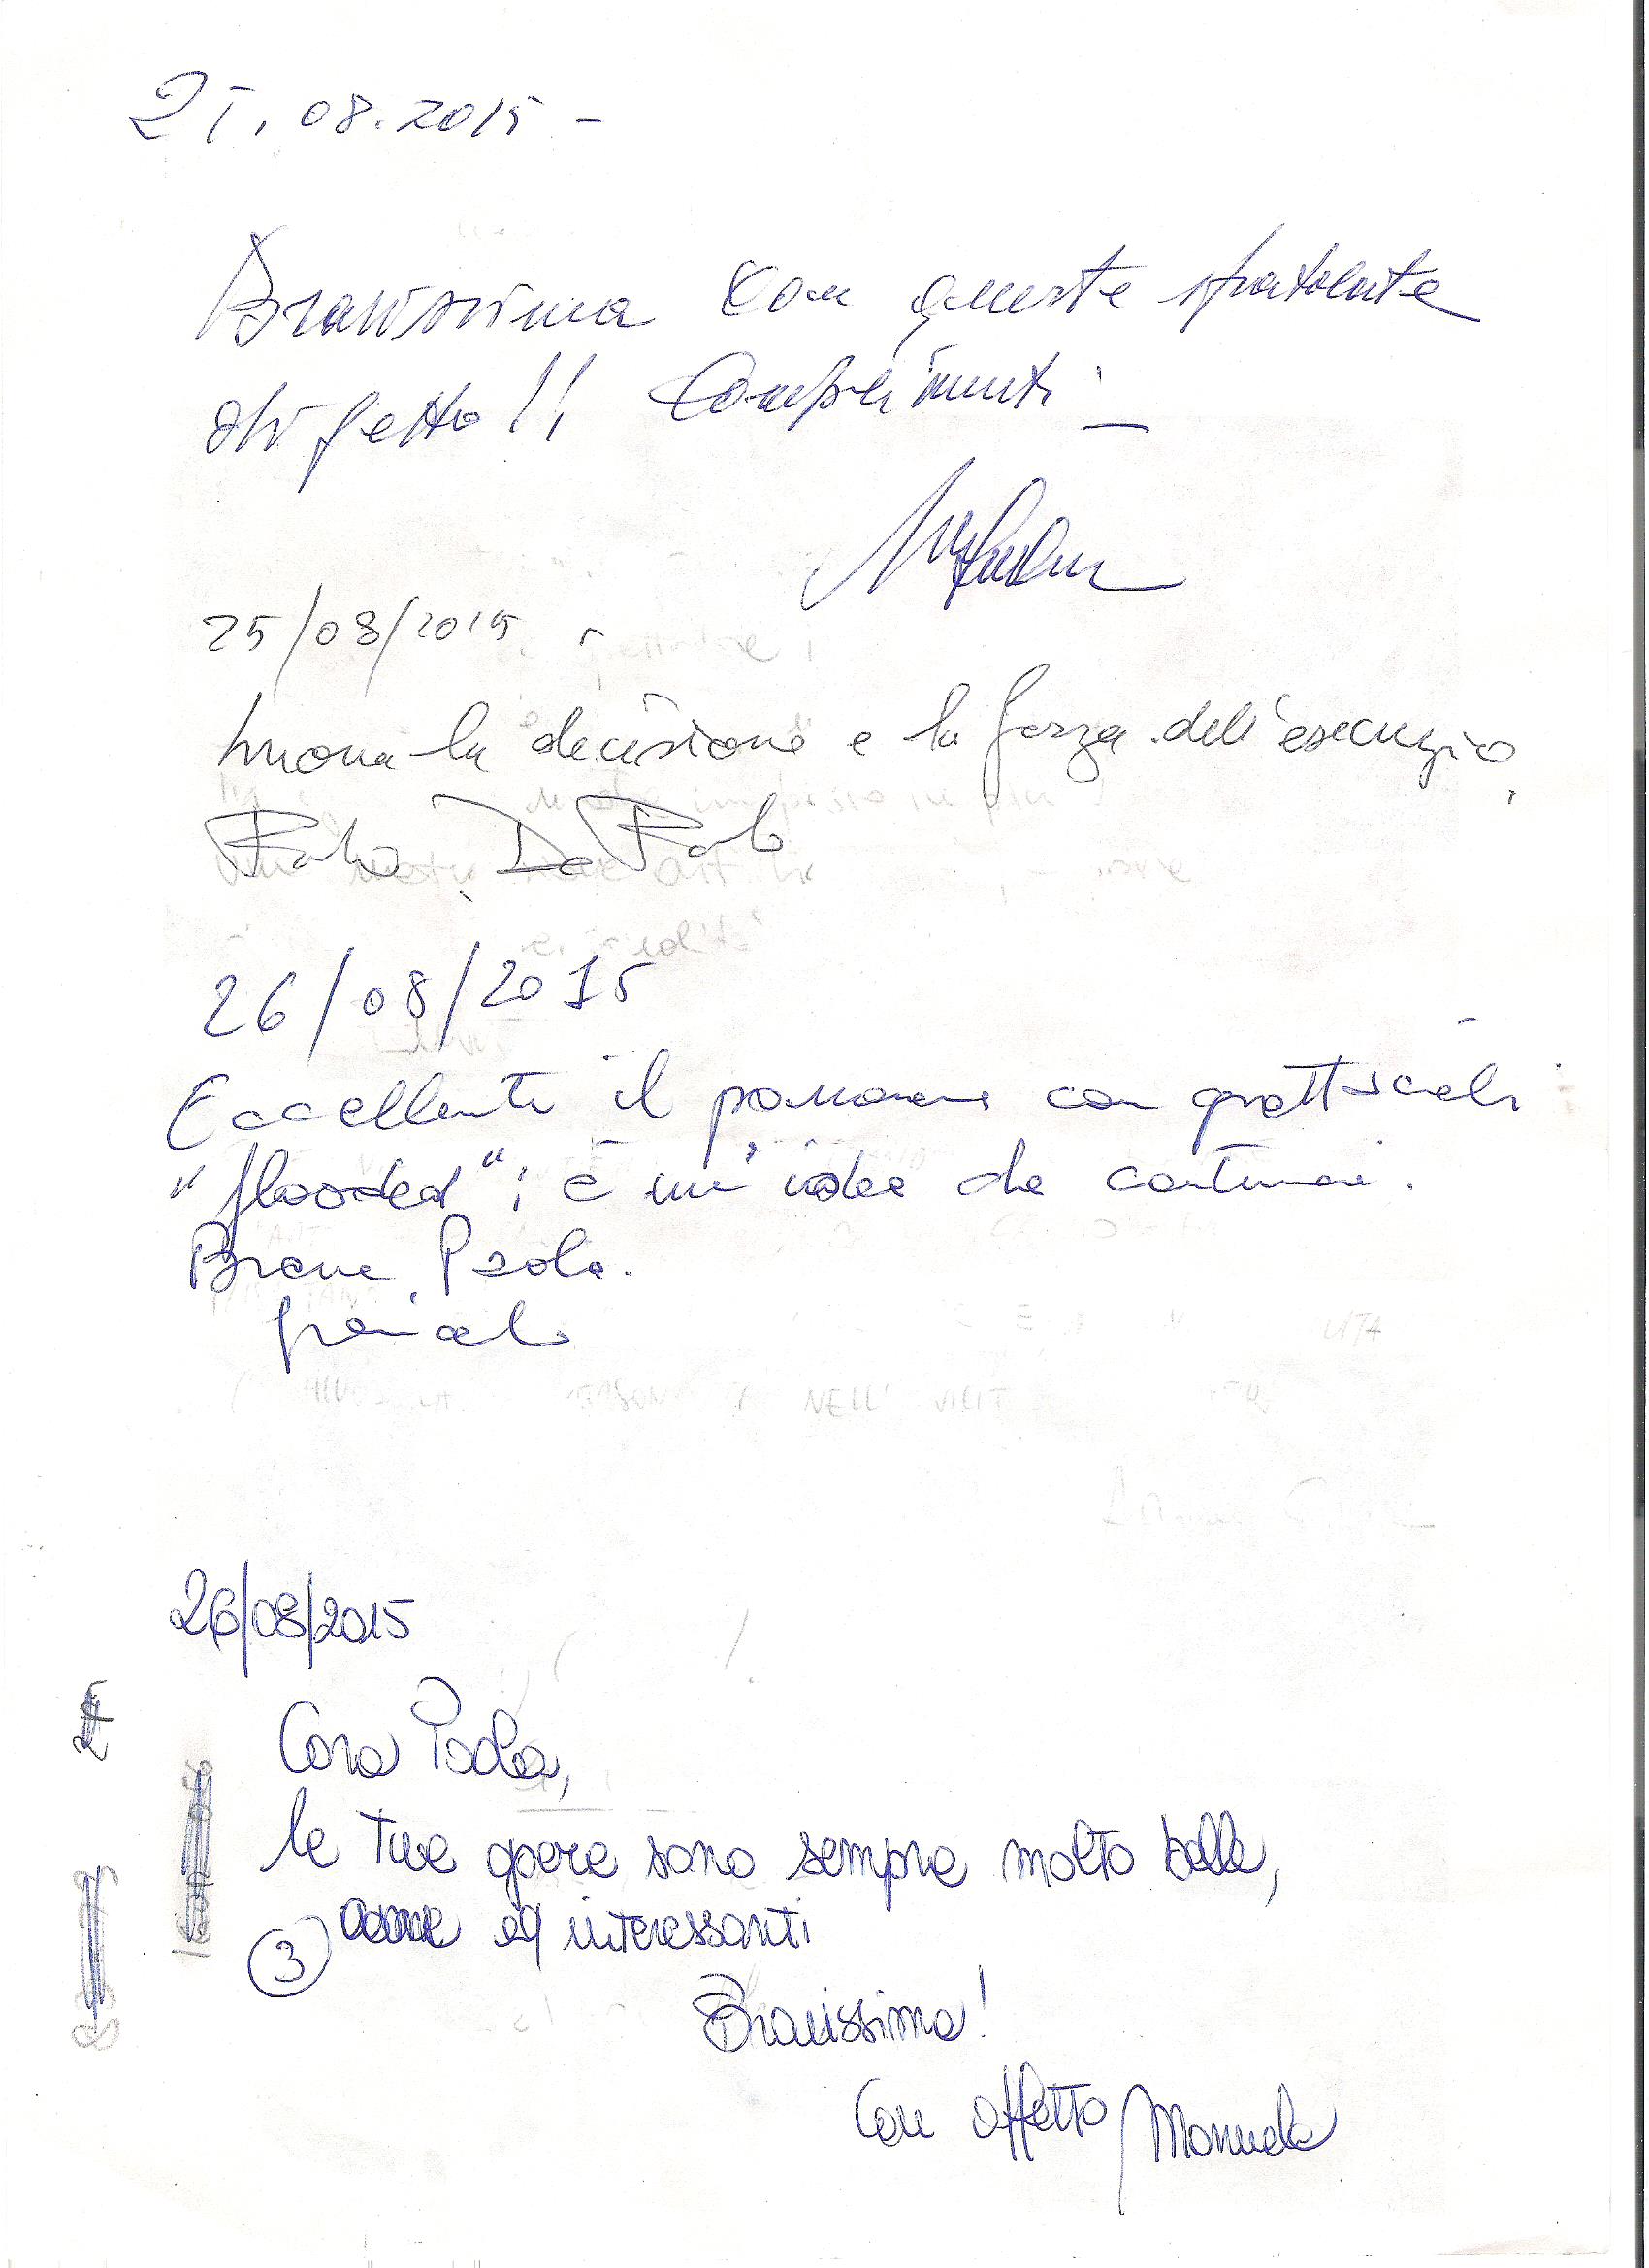 21.08.2015 -
Bravissima con queste spatolate
di getto!! Complimenti -
25/08/2015
buona la decisione e la forza dell'esecuzio
Paolo De Paolo
26/08/2015
Eccellente il panorama con grattacieli
"flooded"; è un'idea che continuerei.
Brava Paola.
26/08/2015
Cara Paola,
le tue opere sono sempre molto belle,
ed interessanti
3
Bravissima!
Con affetto Manuela